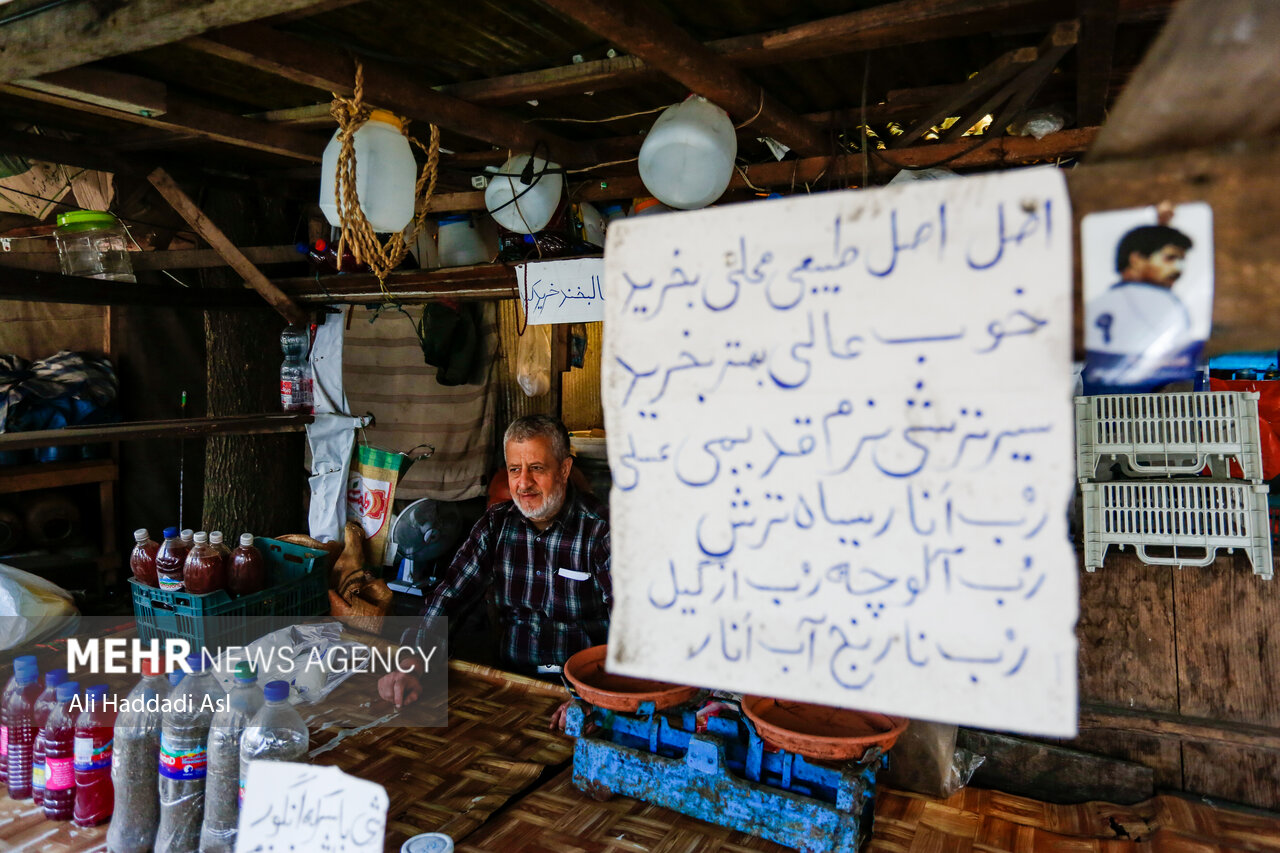 اصل اصل طبیعی محلی بخرید
خوب عالی بهتر بخرید
سیر ترشی نرم قدیمی عسلی
رُب اَنار سیاه ترش
رُب آلوچه رُب ازگیل
رُب نارنج آب اَنار
بالبخند خرید کن
MEHR NEWS AGENCY
Ali Haddadi Asl
۹